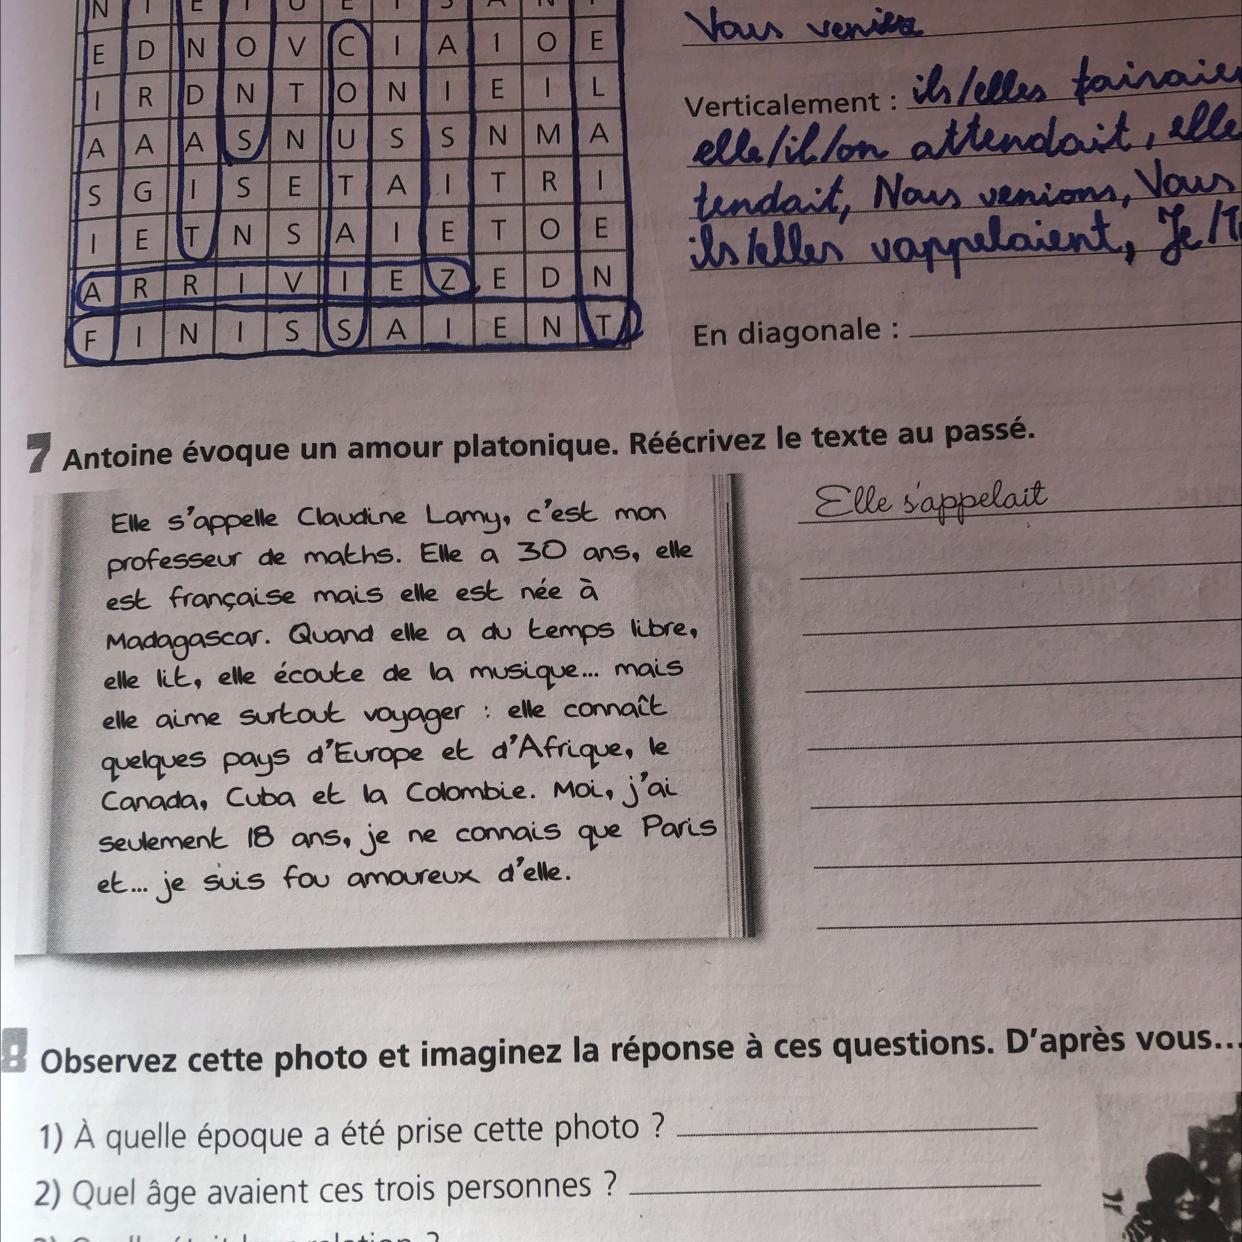 E D N O V C I A I O E
I R D N T O N I E I L
A A A S N U S S N M A
S G I S E T A I T R I
I E T N S A I E T O E
A R R I V I E Z E D N
F I N I S S A I E N T
Vous veniez
Verticalement : ils/elles
elle/il/on attendait, elle
tendait, Nous venions, Vous
ils/elles vappelaient, Je/T
En diagonale :
7 Antoine évoque un amour platonique. Réécrivez le texte au passé.
Elle s'appelle Claudine Lamy, c'est mon
professeur de maths. Elle a 30 ans, elle
est française mais elle est née à
Madagascar. Quand elle a du temps libre,
elle lit, elle écoute de la musique... mais
elle aime surtout voyager : elle connaît
quelques pays d'Europe et d'Afrique, le
Canada, Cuba et la Colombie. Moi, j'ai
seulement 18 ans, je ne connais que Paris
et... je suis fou amoureux d'elle.
Elle s'appelait
8 Observez cette photo et imaginez la réponse à ces questions. D'après vous...
1) À quelle époque a été prise cette photo ?
2) Quel âge avaient ces trois personnes ?